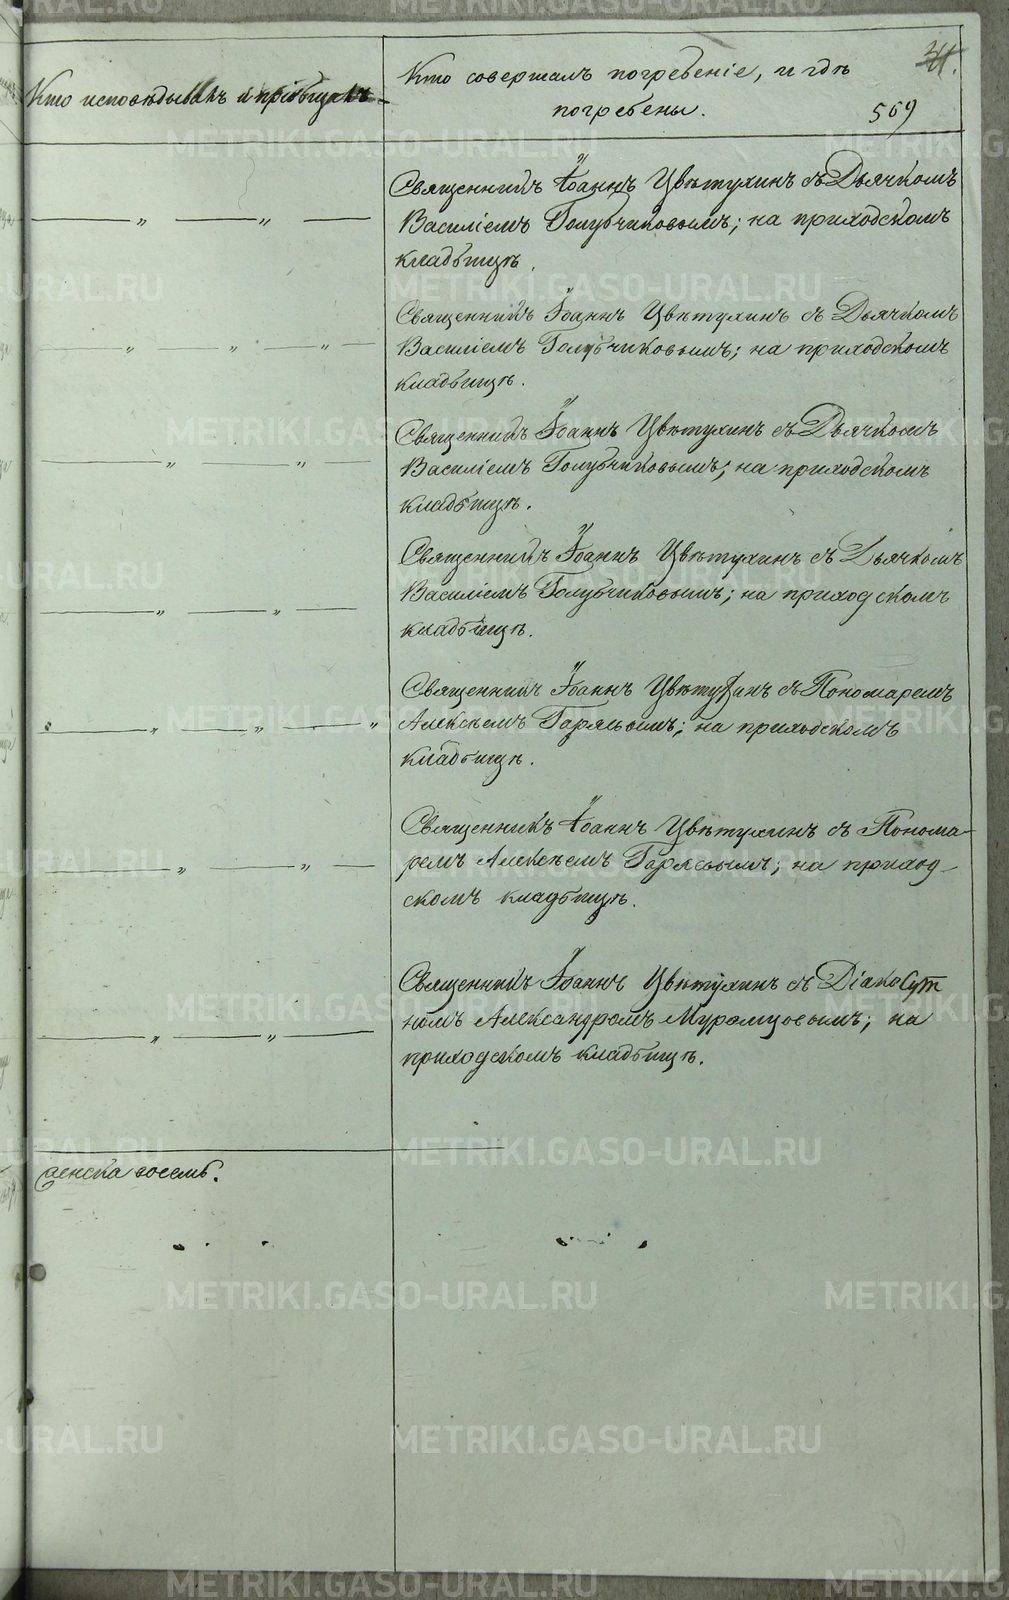 Кто исповѣдывалъ и пріобщалъ
Кто совершалъ погребеніе, и гдѣ
погребены.
569
Священникъ Іоаннъ Цвѣтухинъ съ Дьячкомъ
Василіемъ Голубчиковымъ; на приходскомъ
кладбищѣ.
Священникъ Іоаннъ Цвѣтухинъ съ Дьячкомъ
Василіемъ Голубчиковымъ; на приходскомъ
кладбищѣ.
Священникъ Іоаннъ Цвѣтухинъ съ Дьячкомъ
Василіемъ Голубчиковымъ; на приходскомъ
кладбищѣ.
Священникъ Іоаннъ Цвѣтухинъ съ Дьячкомъ
Василіемъ Голубчиковымъ; на приходскомъ
кладбищѣ.
Священникъ Іоаннъ Цвѣтухинъ съ Пономаремъ
Алексѣемъ Гаряевымъ; на приходскомъ
кладбищѣ.
Священникъ Іоаннъ Цвѣтухинъ съ Понома-
ремъ Алексѣемъ Гаряевымъ; на приход-
скомъ кладбищѣ.
Священникъ Іоаннъ Цвѣтухинъ съ Діако
номъ Александромъ Муромцовымъ; на
приходскомъ кладбищѣ.
женска восемь.
METRIKI.GASO-URAL.RU